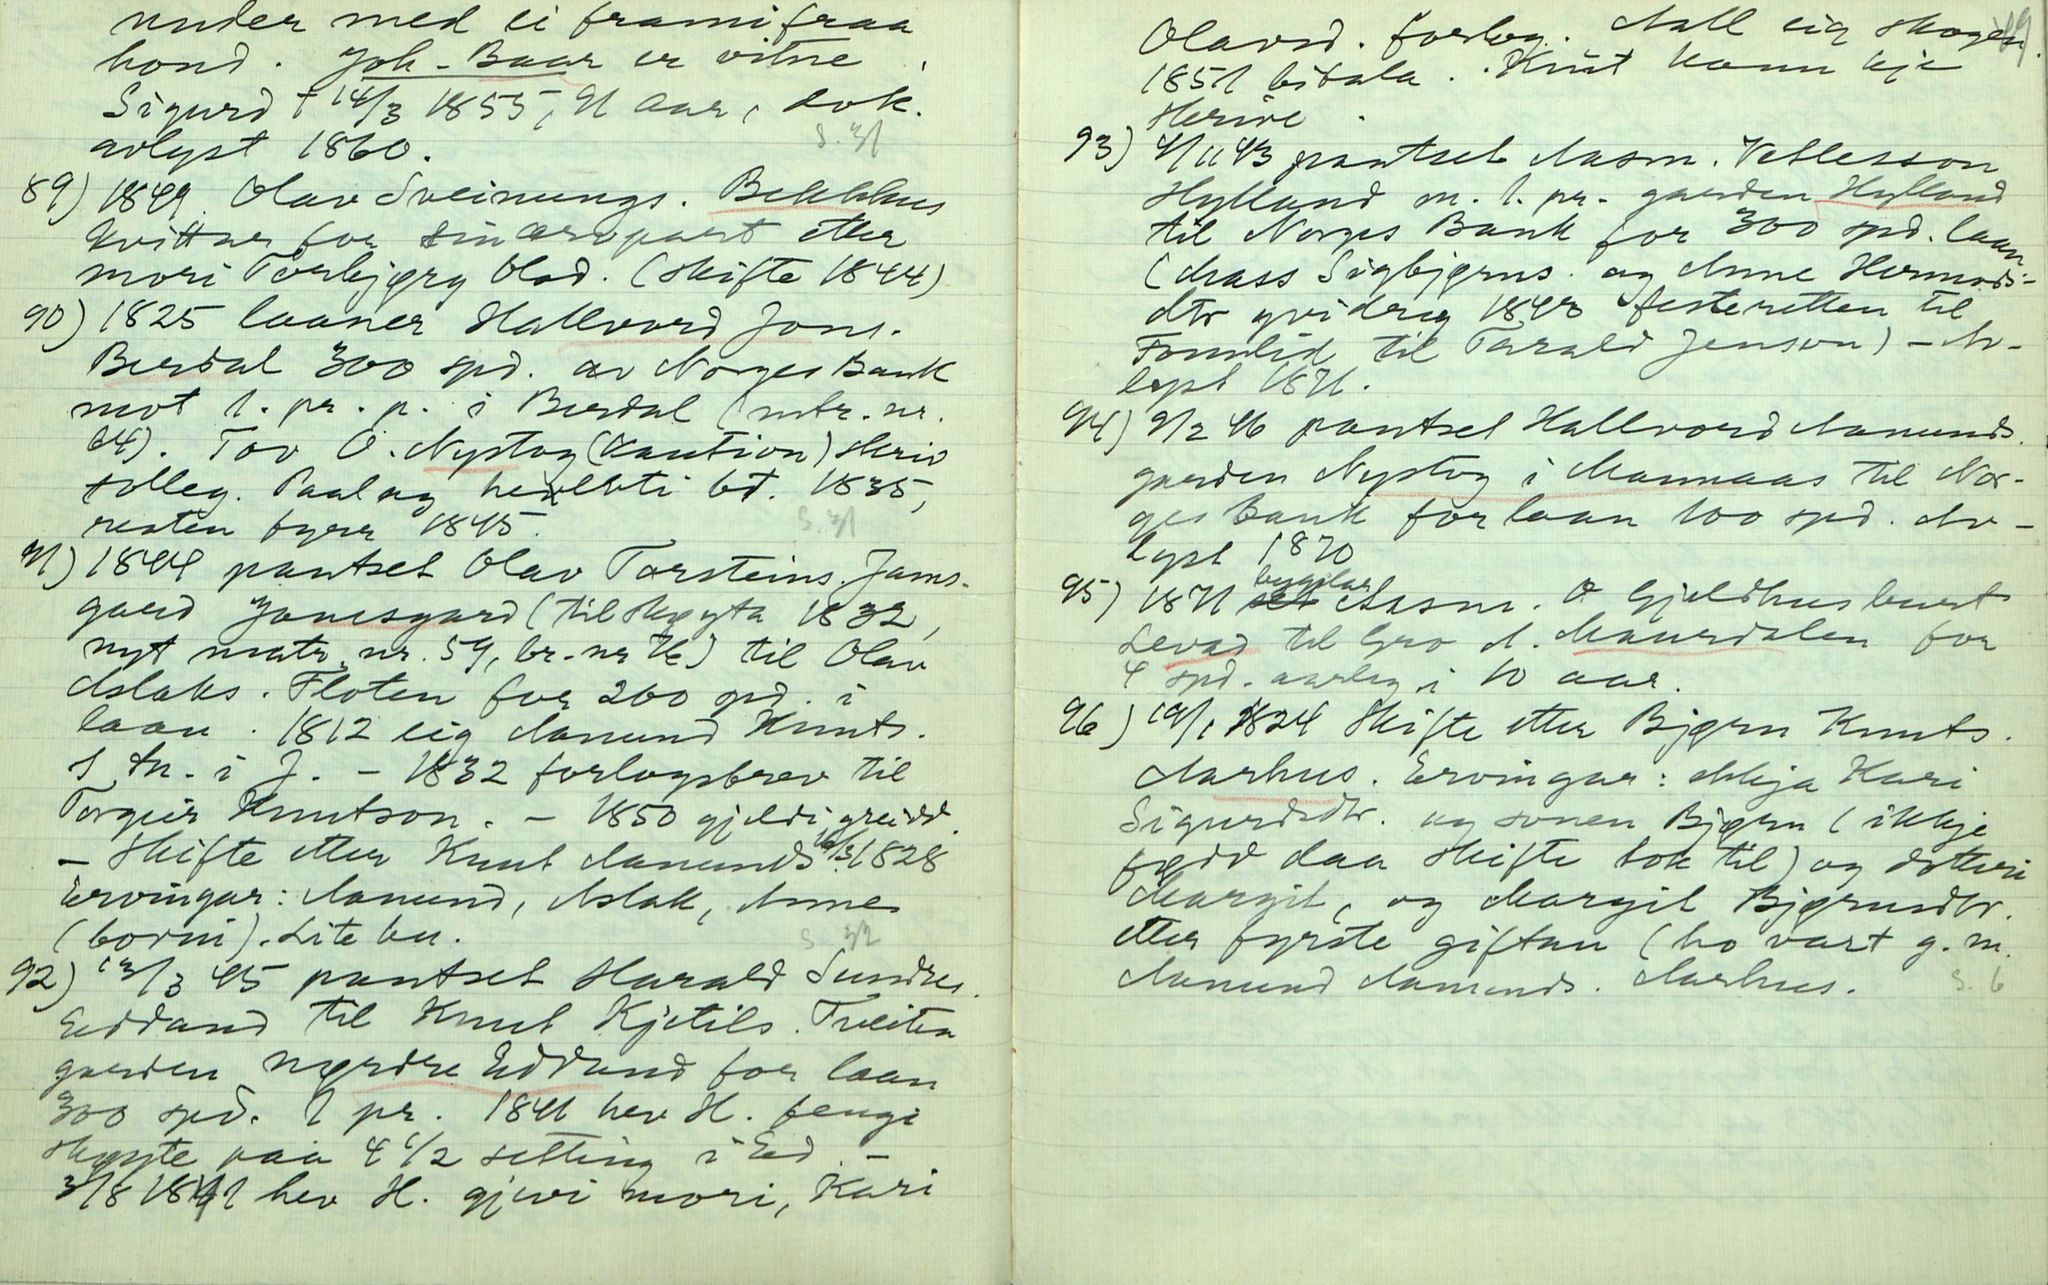 under med ei framifraa
hond. Joh. Baar er vitne.
Sigurd † 14/3 1855, 91 aar, dok.
avlyst 1860. S. 31
89) 1849 Olav Sveinungs. Bekkhus
kvitterer for sin arvepart etter
mori Torbjørg Olsd. (skifte 1844)
90) 1825 laaner Hallvord Jons.
Berdal 300 spd. av Norges Bank
mot 1. pr. p. i Berdal (mtr. nr.
64). Tov O. Nystog (kaution) skriv
tolleg. Paalag hevelsti bt. 1835,
resten fyrr 1845. S. 31
91) 1844 pantset Olav Torsteins. Jams-
gard Jamsgard (tilskøyta 1832,
nyt matr. nr. 59, br. nr 76) til Olav
Aslaks. Floten for 260 spd. i
laan. 1812 eig Aamund Knuts.
1 tn. i J. – 1832 forlogsbrev til
Torgeir Knutson. – 1850 gjeldi greidd.
– Skifte etter Knut Aamunds 10/3 1828
Ervingar: Aamund, Aslak, Anne
(borni). Lite bu. S. 32
92) 13/3 45 pantset Harald Sundres.
Eddand til Knut Kjetils. Tveiten
garden nørdre Eddand for laan
300 spd. 1 pr. 1841 hev H. fengi
skøyte paa 4 1/2 setting i Ed. –
3/8 1841 hev H. gjevi mori, Kari
89.
Olavsd. forlog. Aall eig skogen.
1851 bitala. Knut kann ikje
skrive.
93) 4/11 43 pantset Aasm. Vetlesson
Hylland m. 1. pr. garden Hylland
til Norges Bank for 300 spd. laan
(Aass Sigbjørns. og Anne Hermods-
dtr yvidreg 1843 festeretten til
Fomlid til Tarald Jenson) – Av-
lyst 1871.
94) 9/2 46 pantset Hallvord Aamunds.
garden Nystog i Mannaas til Nor-
ges Bank for laan 100 spd. Av-
lyst 1870
95) 1871 bygslar Aasm. O Gjeldhus burt
Levad til Gro A. Maurdalen for
4 spd. aarleg i 10 aar.
96) 19/1 1824 Skifte etter Bjørn Knuts.
Aarhus. Ervingar: ekkja Kari
Sigurdsdtr. og sonen Bjørn (ikkje
fødd daa skifte tok til) og dotteri
Margit, og Margit Bjørnsdtr.
etter fyrste giftan (ho vart g. m.
Aamund Aamunds. Aarhus. S. 6